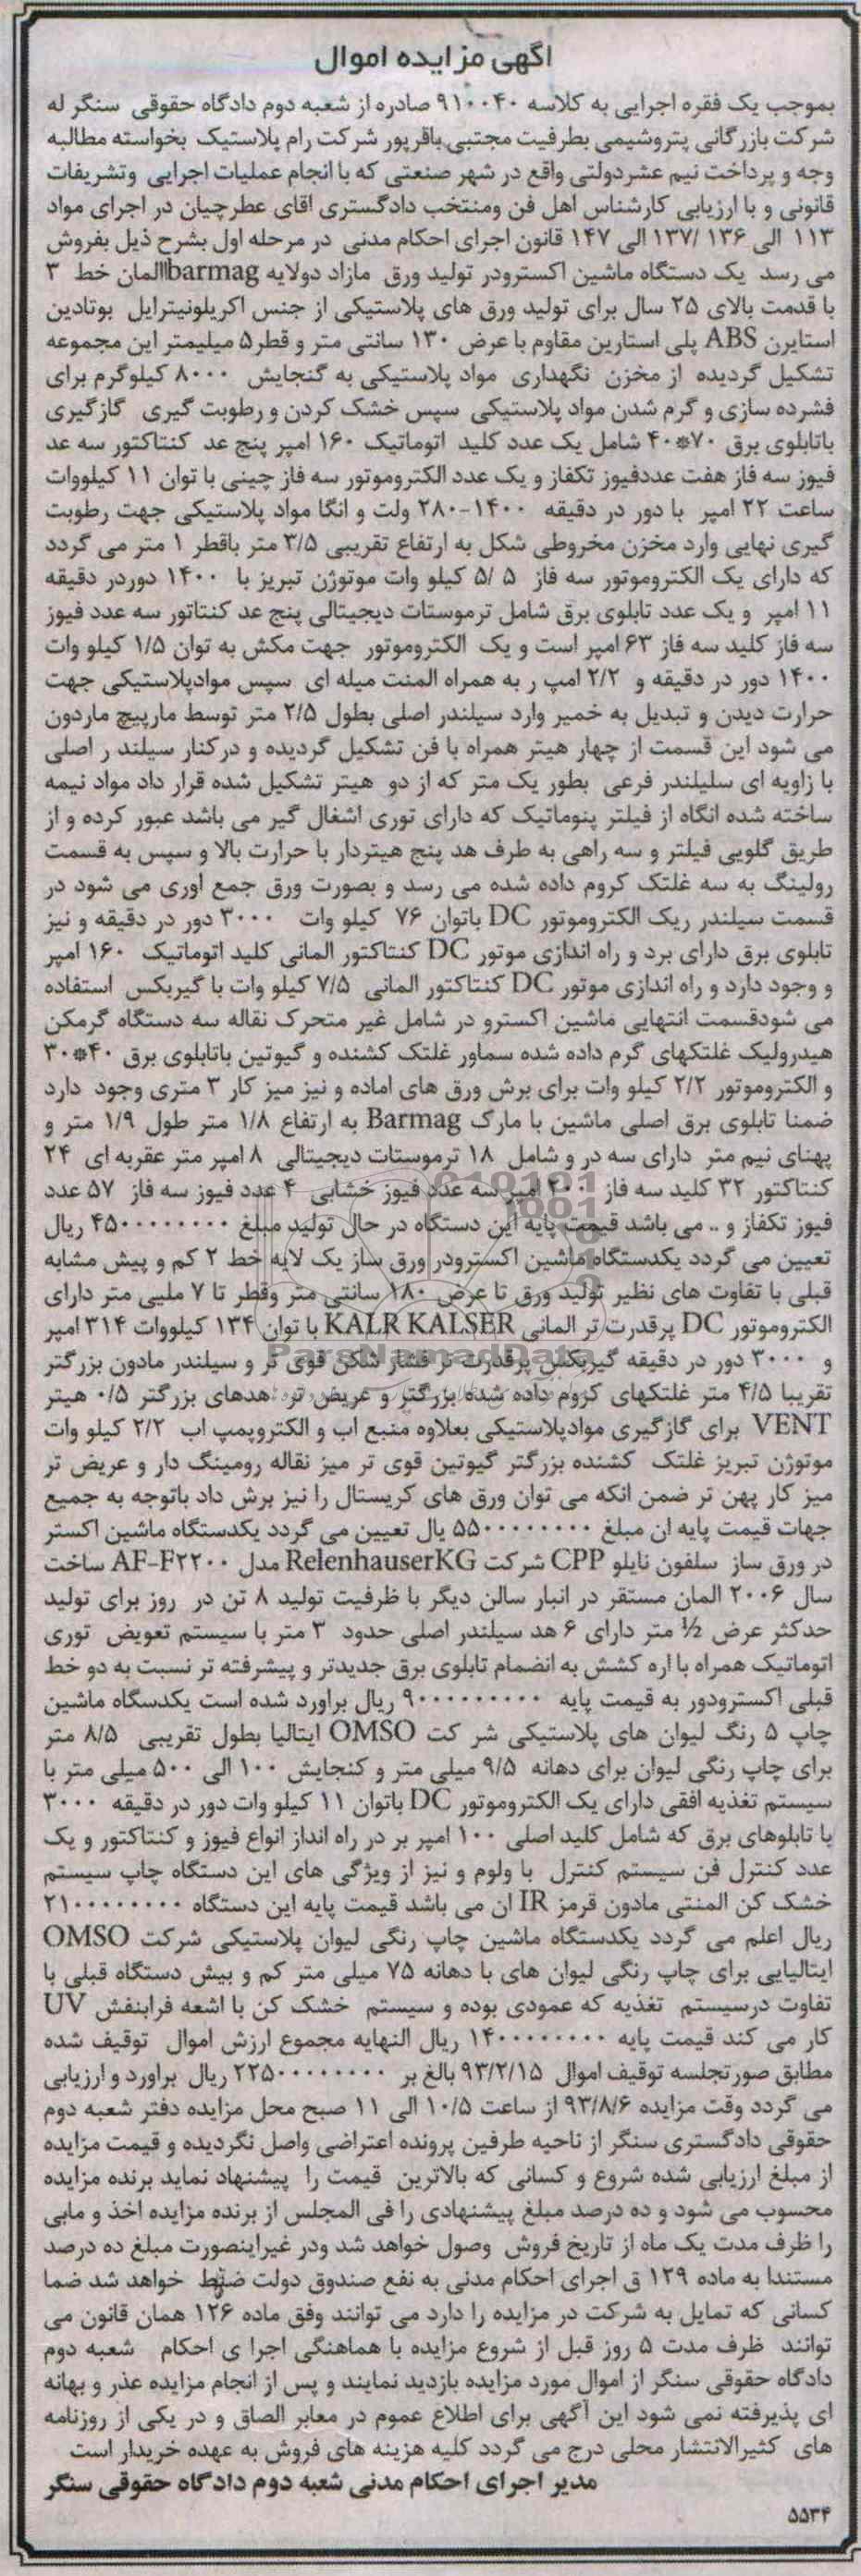 اگهی مزایده اموال
بموجب یک فقره اجرایی به کلاسه ۹۱۰۰۴۰ صادره از شعبه دوم دادگاه حقوقی سنگر له
شرکت بازرگانی پتروشیمی بطرفیت مجتبی باقرپور شرکت رام پلاستیک بخواسته مطالبه
وجه و پرداخت نیم عشردولتی واقع در شهر صنعتی که با انجام عملیات اجرایی وتشریفات
قانونی و با ارزیابی کارشناس اهل فن ومنتخب دادگستری اقای عطرچیان در اجرای مواد
۱۱۳ الی ۱۳۶ /۱۳۷ الی ۱۴۷ قانون اجرای احکام مدنی در مرحله اول بشرح ذیل بفروش
می رسد یک دستگاه ماشین اکسترودر تولید ورق مازاد دولایه barmag المان خط ۳
با قدمت بالای ۲۵ سال برای تولید ورق های پلاستیکی از جنس اکریلونیترایل بوتادین
استایرن ABS پلی استارین مقاوم با عرض ۱۳۰ سانتی متر و قطر۵ میلیمتر این مجموعه
تشکیل گردیده از مخزن نگهداری مواد پلاستیکی به گنجایش ۸۰۰۰ کیلوگرم برای
فشرده سازی و گرم شدن مواد پلاستیکی سپس خشک کردن و رطوبت گیری گازگیری
باتابلوی برق ۷۰*۴۰ شامل یک عدد کلید اتوماتیک ۱۶۰ امپر پنج عد کنتاکتور سه عد
فیوز سه فاز هفت عددفیوز تکفاز و یک عدد الکتروموتور سه فاز چینی با توان ۱۱ کیلووات
ساعت ۲۲ امپر با دور در دقیقه ۱۴۰۰-۲۸۰ ولت و انگا مواد پلاستیکی جهت رطوبت
گیری نهایی وارد مخزن مخروطی شکل به ارتفاع تقریبی ۳/۵ متر باقطر ۱ متر می گردد
که دارای یک الکتروموتور سه فاز ۵ /۵ کیلو وات موتوژن تبریز با ۱۴۰۰ دوردر دقیقه
۱۱ امپر و یک عدد تابلوی برق شامل ترموستات دیجیتالی پنج عد کنتاتور سه عدد فیوز
سه فاز کلید سه فاز ۶۳ امپر است و یک الکتروموتور جهت مکش به توان ۱/۵ کیلو وات
۱۴۰۰ دور در دقیقه و ۲/۲ امپ ر به همراه المنت میله ای سپس موادپلاستیکی جهت
حرارت دیدن و تبدیل به خمیر وارد سیلندر اصلی بطول ۲/۵ متر توسط مارپیچ ماردون
می شود این قسمت از چهار هیتر همراه با فن تشکیل گردیده و درکنار سیلند ر اصلی
با زاویه ای سلیلندر فرعی بطور یک متر که از دو هیتر تشکیل شده قرار داد مواد نیمه
ساخته شده انگاه از فیلتر پنوماتیک که دارای توری اشغال گیر می باشد عبور کرده و از
طریق گلویی فیلتر و سه راهی به طرف هد پنج هیتردار با حرارت بالا و سپس به قسمت
رولینگ به سه غلتک کروم داده شده می رسد و بصورت ورق جمع اوری می شود در
قسمت سیلندر ریک الکتروموتور DC باتوان ۷۶ کیلو وات ۳۰۰۰ دور در دقیقه و نیز
تابلوی برق دارای برد و راه اندازی موتور DC کنتاکتور المانی کلید اتوماتیک ۱۶۰ امپر
و وجود دارد و راه اندازی موتور DC کنتاکتور المانی ۷/۵ کیلو وات با گیربکس استفاده
می شودقسمت انتهایی ماشین اکسترو در شامل غیر متحرک نقاله سه دستگاه گرمکن
هیدرولیک غلتکهای گرم داده شده سماور غلتک کشنده و گیوتین باتابلوی برق ۴۰*۳۰
و الکتروموتور ۲/۲ کیلو وات برای برش ورق های اماده و نیز میز کار ۳ متری وجود دارد
ضمنا تابلوی برق اصلی ماشین با مارک Barmag به ارتفاع ۱/۸ متر طول ۱/۹ متر و
پهنای نیم متر دارای سه در و شامل ۱۸ ترموستات دیجیتالی ۸ امپر متر عقربه ای ۲۴
کنتاکتور ۳۲ کلید سه فاز ۲۰۰ امپر سه عدد فیوز خشابی ۴ عدد فیوز سه فاز ۵۷ عدد
فیوز تکفاز و .. می باشد قیمت پایه این دستگاه در حال تولید مبلغ ۴۵۰۰۰۰۰۰۰۰ ریال
تعیین می گردد یکدستگاه ماشین اکسترودر ورق ساز یک لایه خط ۲ کم و پیش مشابه
قبلی با تفاوت های نظیر تولید ورق تا عرض ۱۸۰ سانتی متر وقطر تا ۷ ملیی متر دارای
الکتروموتور DC پرقدرت تر المانی KALR KALSER با توان ۱۳۴ کیلووات ۳۱۴ امپر
و ۳۰۰۰ دور در دقیقه گیربکس پرقدرت تر فشار شکن قوی تر و سیلندر مادون بزرگتر
تقریبا ۴/۵ متر غلتکهای کروم داده شده بزرگتر و عریض تر هدهای بزرگتر ۰/۵ هیتر
VENT برای گازگیری موادپلاستیکی بعلاوه منبع اب و الکتروپمپ اب ۲/۲ کیلو وات
موتوژن تبریز غلتک کشنده بزرگتر گیوتین قوی تر میز نقاله رومینگ دار و عریض تر
میز کار پهن تر ضمن انکه می توان ورق های کریستال را نیز برش داد باتوجه به جمیع
جهات قیمت پایه ان مبلغ ۵۵۰۰۰۰۰۰۰۰ یال تعیین می گردد یکدستگاه ماشین اکستر
در ورق ساز سلفون نایلو CPP شرکت RelenhauserKG مدل AF-F۲۲۰۰ ساخت
سال ۲۰۰۶ المان مستقر در انبار سالن دیگر با ظرفیت تولید ۸ تن در روز برای تولید
حدکثر عرض ½ متر دارای ۶ هد سیلندر اصلی حدود ۳ متر با سیستم تعویض توری
اتوماتیک همراه با اره کشش به انضمام تابلوی برق جدیدتر و پیشرفته تر نسبت به دو خط
قبلی اکسترودور به قیمت پایه ۹۰۰۰۰۰۰۰۰۰ ریال براورد شده است یکدسگاه ماشین
چاپ ۵ رنگ لیوان های پلاستیکی شر کت OMSO ایتالیا بطول تقریبی ۸/۵ متر
برای چاپ رنگی لیوان برای دهانه ۹/۵ میلی متر و کنجایش ۱۰۰ الی ۵۰۰ میلی متر با
سیستم تغذیه افقی دارای یک الکتروموتور DC باتوان ۱۱ کیلو وات دور در دقیقه ۳۰۰۰
با تابلوهای برق که شامل کلید اصلی ۱۰۰ امپر بر در راه انداز انواع فیوز و کنتاکتور و یک
عدد کنترل فن سیستم کنترل با ولوم و نیز از ویژگی های این دستگاه چاپ سیستم
خشک کن المنتی مادون قرمز IR ان می باشد قیمت پایه این دستگاه ۲۱۰۰۰۰۰۰۰۰
ریال اعلم می گردد یکدستگاه ماشین چاپ رنگی لیوان پلاستیکی شرکت OMSO
ایتالیایی برای چاپ رنگی لیوان های با دهانه ۷۵ میلی متر کم و بیش دستگاه قبلی با
تفاوت درسیستم تغذیه که عمودی بوده و سیستم خشک کن با اشعه فرابنفش UV
کار می کند قیمت پایه ۱۴۰۰۰۰۰۰۰۰ ریال النهایه مجموع ارزش اموال توقیف شده
مطابق صورتجلسه توقیف اموال ۹۳/۲/۱۵ بالغ بر ۲۲۵۰۰۰۰۰۰۰۰ ریال براورد و ارزیابی
می گردد وقت مزایده ۹۳/۸/۶ از ساعت ۱۰/۵ الی ۱۱ صبح محل مزایده دفتر شعبه دوم
حقوقی دادگستری سنگر از ناحیه طرفین پرونده اعتراضی واصل نگردیده و قیمت مزایده
از مبلغ ارزیابی شده شروع و کسانی که بالاترین قیمت را پیشنهاد نماید برنده مزایده
محسوب می شود و ده درصد مبلغ پیشنهادی را فی المجلس از برنده مزایده اخذ و مابی
را ظرف مدت یک ماه از تاریخ فروش وصول خواهد شد ودر غیراینصورت مبلغ ده درصد
مستندا به ماده ۱۲۹ ق اجرای احکام مدنی به نفع صندوق دولت ضبط خواهد شد ضما
کسانی که تمایل به شرکت در مزایده را دارد می توانند وفق ماده ۱۲۶ همان قانون می
توانند ظرف مدت ۵ روز قبل از شروع مزایده با هماهنگی اجرا ی احکام شعبه دوم
دادگاه حقوقی سنگر از اموال مورد مزایده بازدید نمایند و پس از انجام مزایده عذر و بهانه
ای پذیرفته نمی شود این آگهی برای اطلاع عموم در معابر الصاق و در یکی از روزنامه
های کثیرالانتشار محلی درج می گردد کلیه هزینه های فروش به عهده خریدار است
مدیر اجرای احکام مدنی شعبه دوم دادگاه حقوقی سنگر
۵۵۳۴
ParsNamadData